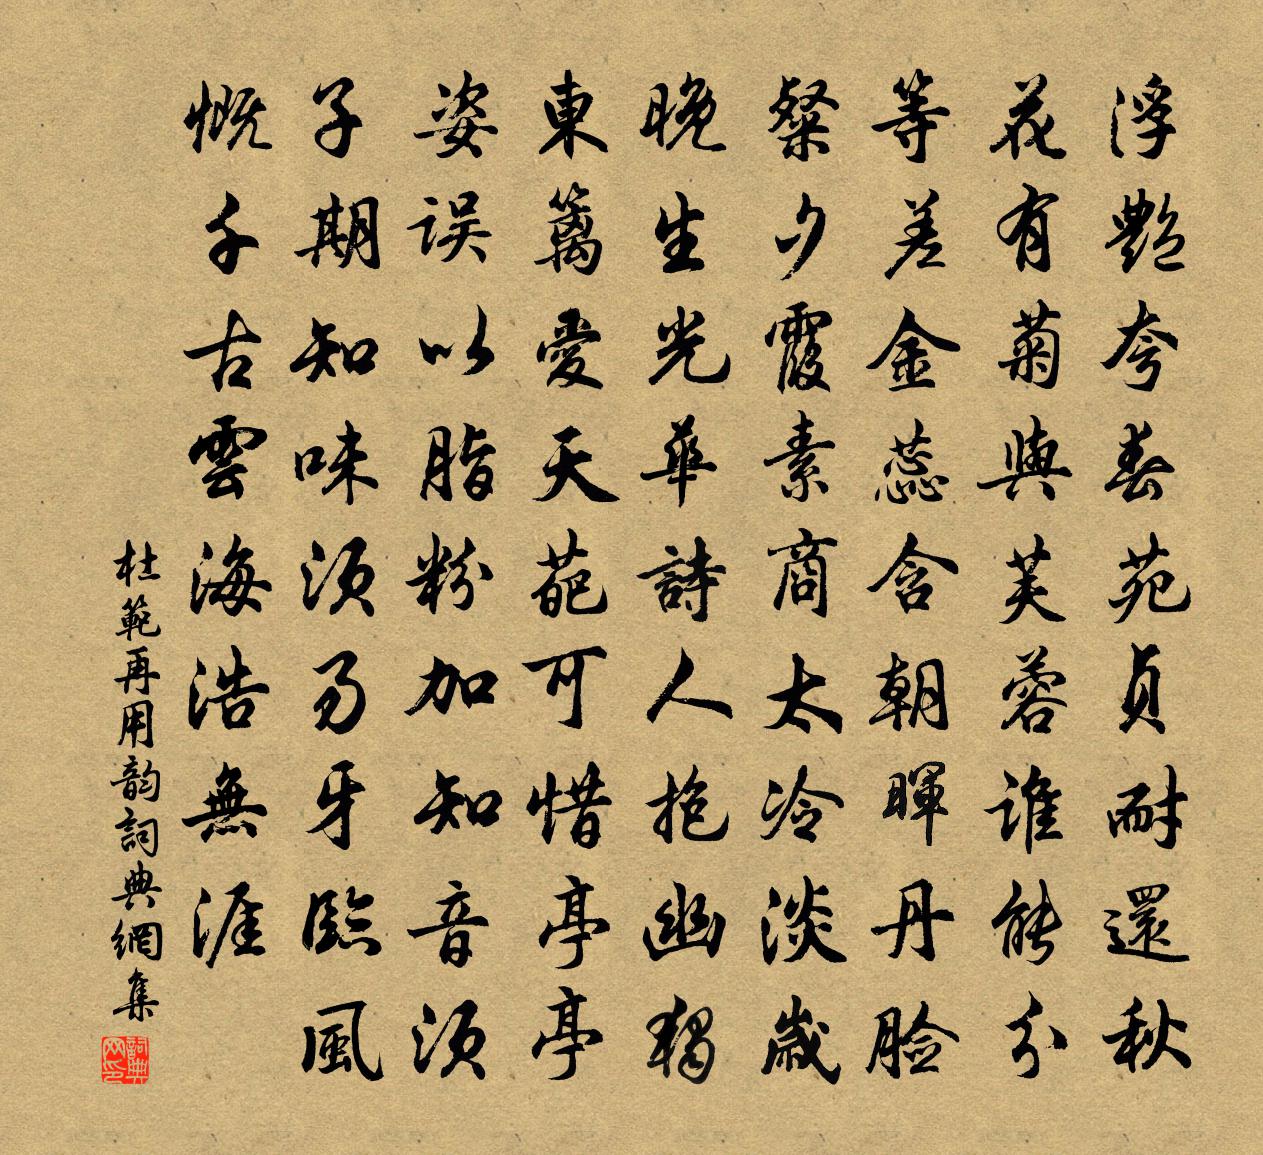 浮艷夸春苑貞耐還秋
花有菊與芙蓉谁能分
等差金蕊含朝暉丹脸
粲夕霞素商太冷淡歲
晚生光華詩人抱幽獨
東籬愛天葩可惜亭亭
姿误以脂粉加知音须
子期知味须易牙臨風
慨千古雲海浩無涯
杜範再用韵詞典網集
詞典网印